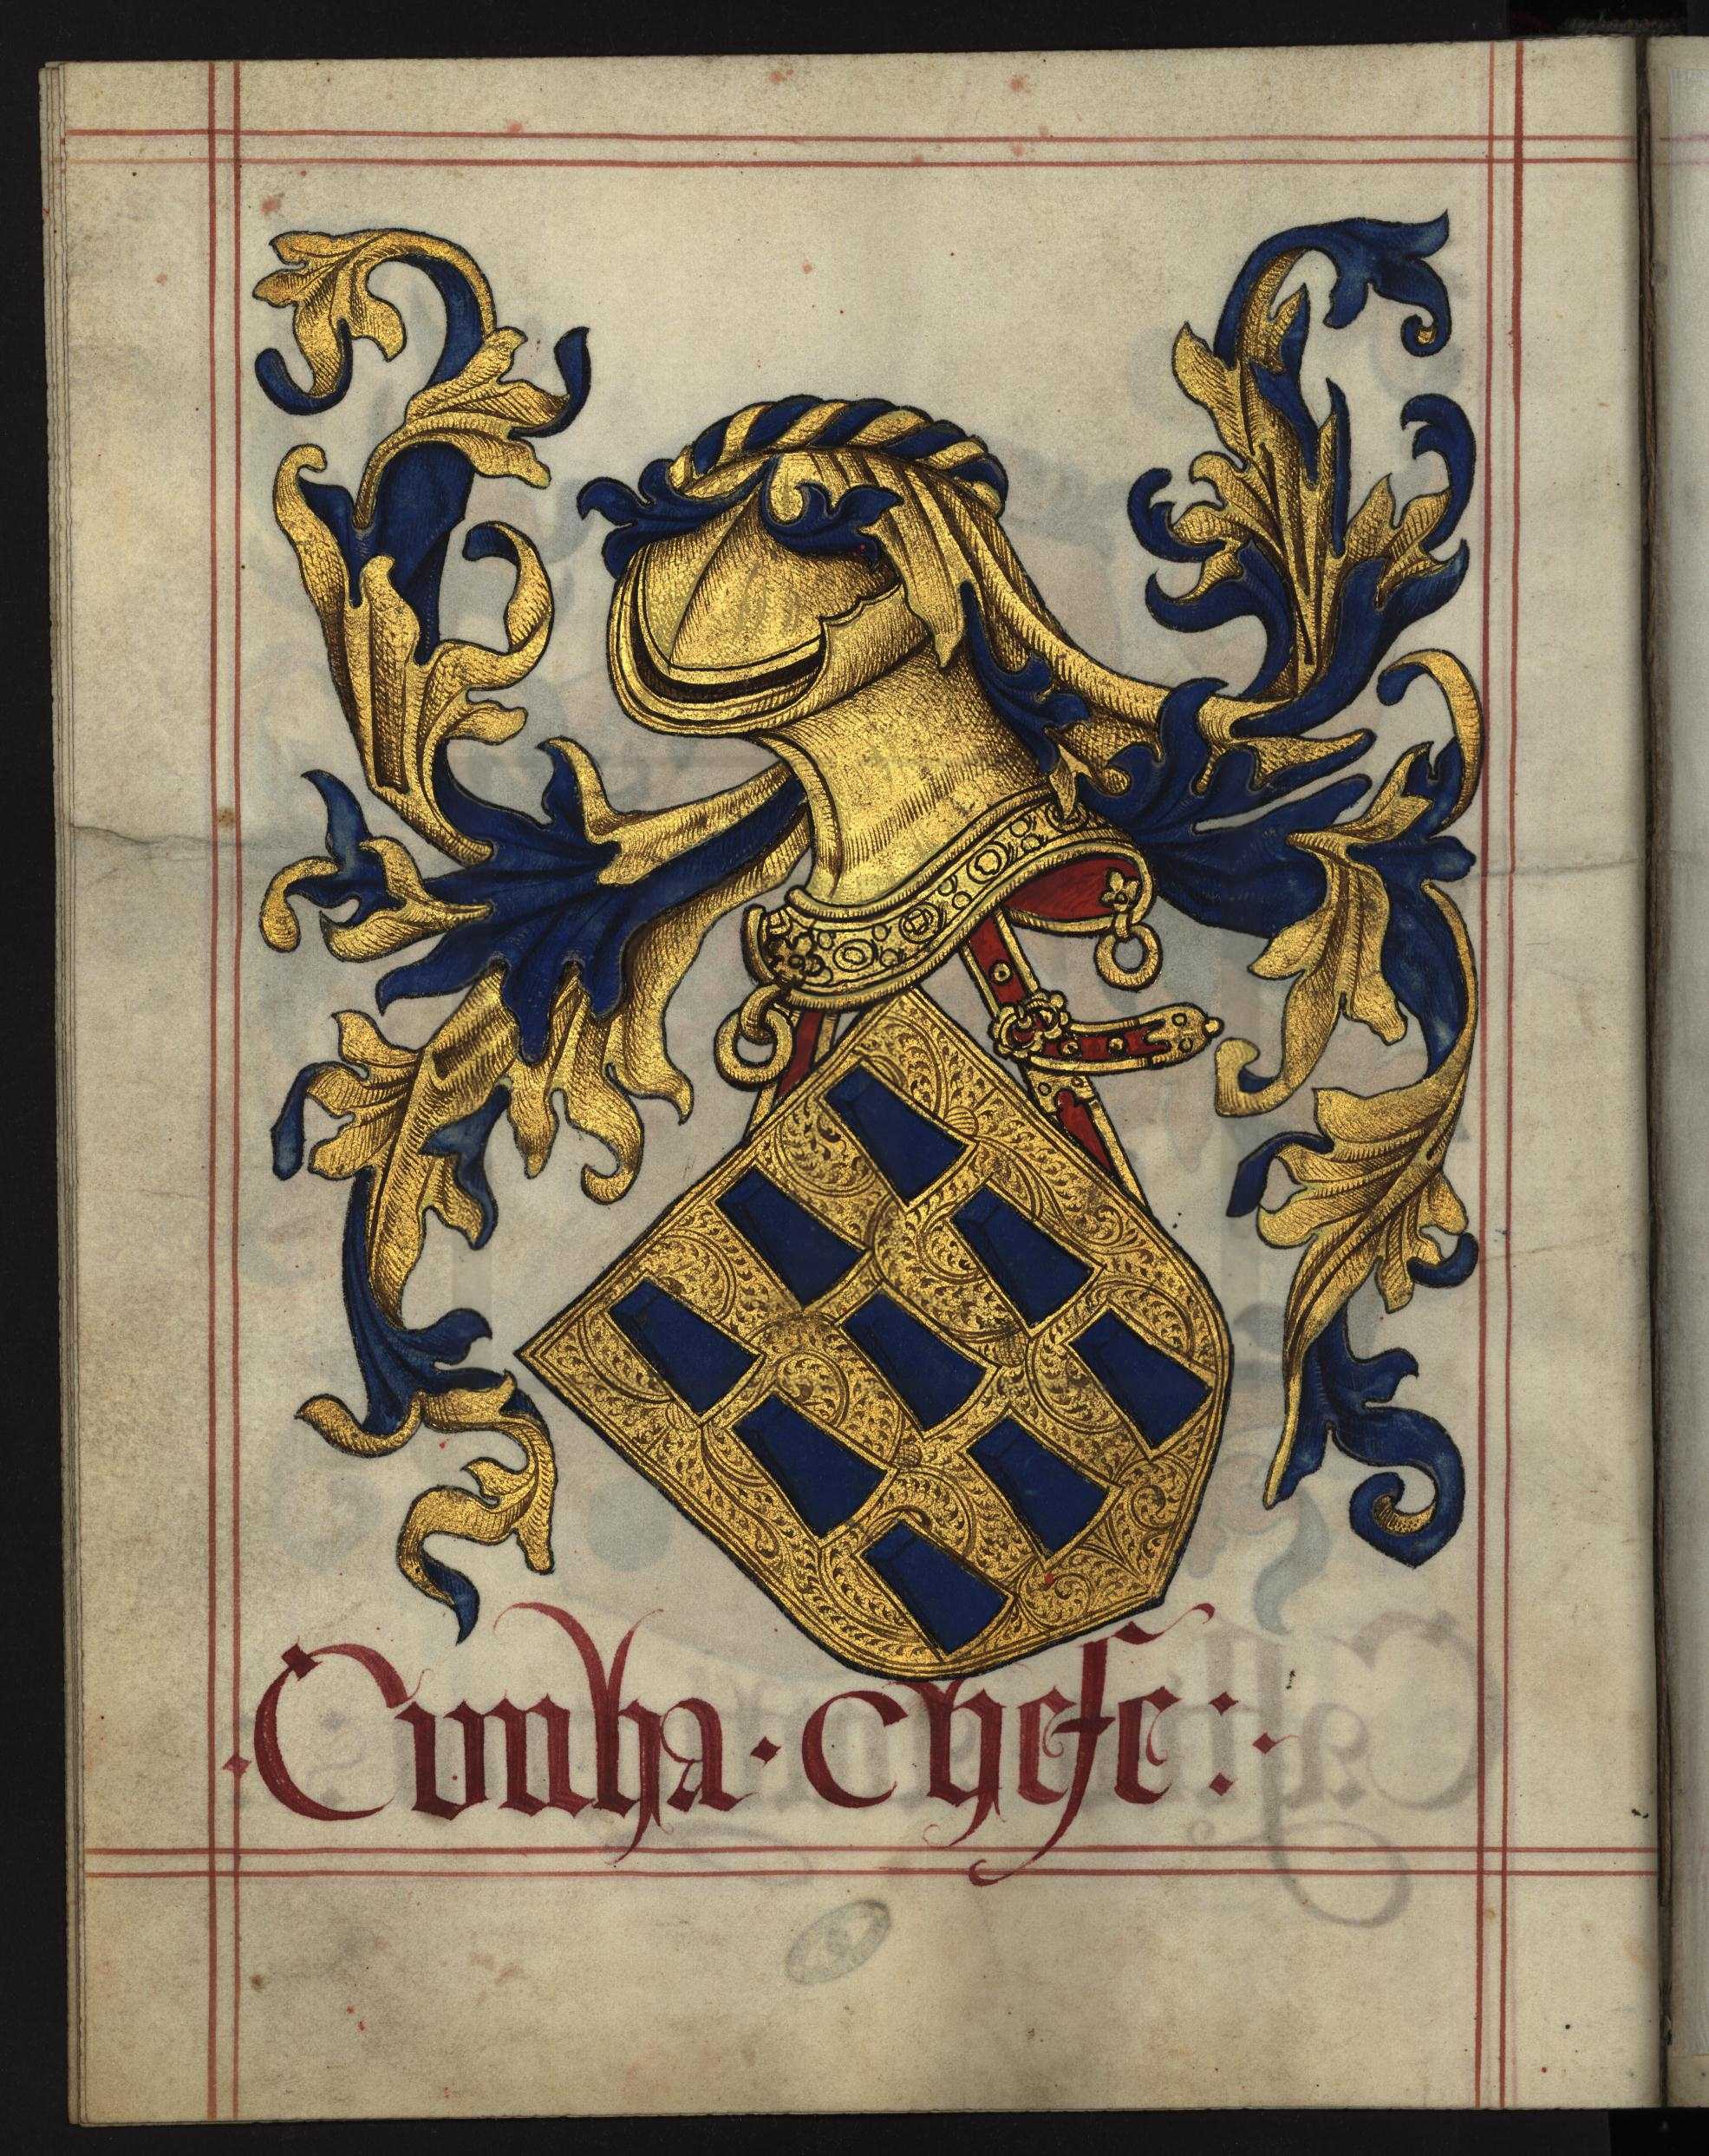 ·Cunha·chefe:·